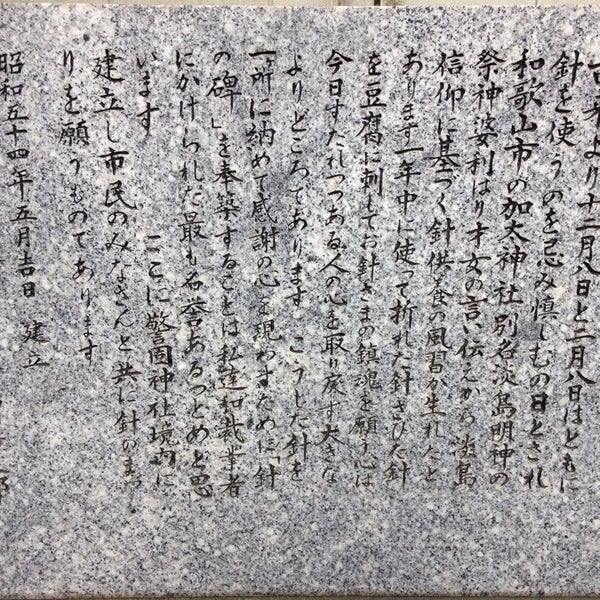 古来より十二月八日と二月八日はともに
針を使うのを忌み慎しむの日とされ
和歌山市の加太神社別名淡島明神の
祭神婆利はり才女の言い伝えから淡島
信仰に基づく針供養の風習が生れたと
あります一年中に使って折れた針さびた針
を豆腐に刺してお針さまの鎮魂を願う心は
今日すたれつつある人の心を取り戻す大きな
よりどころであります こうした針を
一所に納めて感謝の心を現わすために「針
の碑」を奉築することは私達和裁業者
にかけられた最も名誉あるつとめと思
います ここに警固神社境内に
建立し市民のみなさんと共に針のまつ
りを願うものであります
昭和五十四年五月吉日 建立